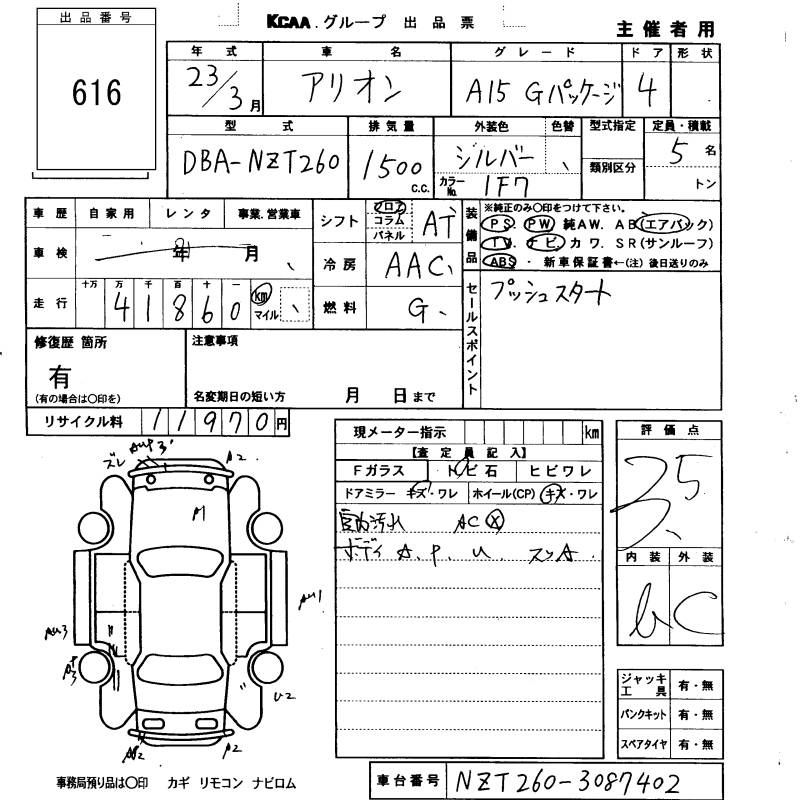 出品番号
616
KCAA.グループ 出品票
主催者用
年式 車名 グレード ドア 形状
23/3月 アリオン A15 Gパッケージ 4
型式 排気量 外装色 色替 型式指定 定員・積載
DBA-NZT260 1500 c.c. シルバー 類別区分 5名
カラーNo. 1F7 トン
車歴 自家用 レンタ 事業.営業車
車検 年 月
走行 十万 万 千 百 十 一
4 1 8 6 0 km マイル
シフト フロア コラム パネル AT
冷房 AAC
燃料 G
装備品
※純正のみ〇印をつけて下さい。
PS. PW 純AW. AB(エアバック)
TV. ナビ. カワ. SR(サンルーフ)
ABS ・ 新車保証書←(注)後日送りのみ
セールスポイント
プッシュスタート
修復歴 箇所
有
(有の場合は〇印を)
注意事項
名変期日の短い方 月 日まで
リサイクル料 11970円
現メーター指示 km
【査定員記入】
Fガラス トビ石 ヒビワレ
ドアミラー キズ・ワレ ホイール(CP) キズ・ワレ
室内汚れ AC
ボディ A. P. U. スリA.
評価点
3.5
内装 外装
b C
ジャッキ工具 有・無
パンクキット 有・無
スペアタイヤ 有・無
ズレ
A2
A1
AU1
AU3
U2
A2
事務局預り品は〇印 カギ リモコン ナビロム
車台番号 NZT260-3087402